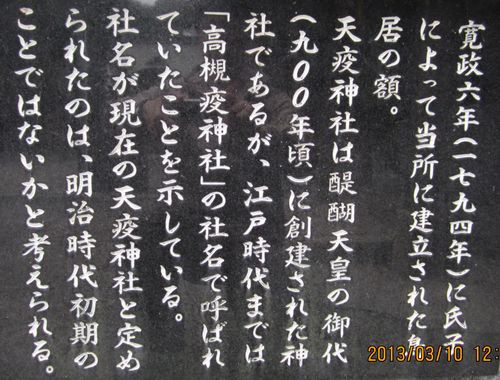 寛政六年(一七九四年)に氏子
によって当所に建立された鳥
居の額。
天疫神社は醍醐天皇の御代
(九〇〇年頃)に創建された神
社であるが、江戸時代までは
「高槻疫神社」の社名で呼ばれ
ていたことを示している。
社名が現在の天疫神社と定め
られたのは、明治時代初期の
ことではないかと考えられる。
2013/03/10 12: